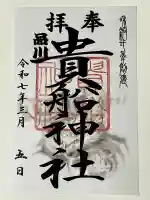 奉拝
品川
貴船神社
令和七年三月
五日